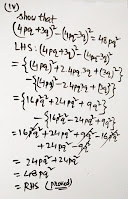 (iv)
show that
(4pq+3q)²-(4pq-3q)²=48pq²
LHS: (4pq+3q)²-(4pq-3q)²
={(4pq)²+2.4pq.3q+(3q)²}
-{(4pq)²-2.4pq.3q+(3q)²}
={16p²q²+24pq²+9q²}
-{16p²q²-24pq²+9q²}
=16p²q²+24pq²+9q²-16p²q²
+24pq²-9q²
=24pq²+24pq²
=48pq²
=RHS (Proved)